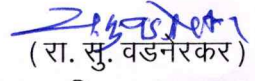 ( रा. सु. वडनेरकर )